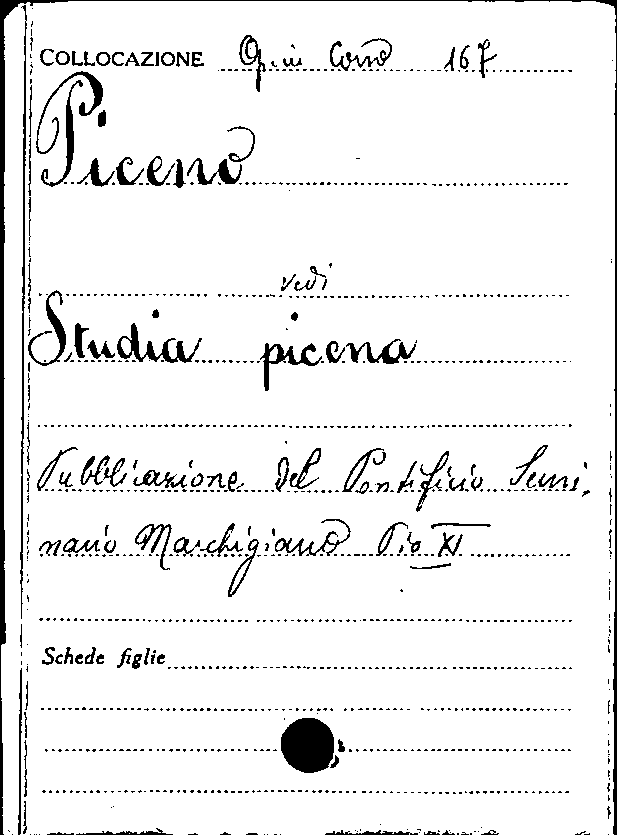 COLLOCAZIONE Op. in Corso 167
Piceno
vedi
Studia picena
Pubblicazione del Pontificio Semi-
nario Marchigiano Pio XI
Schede figlie